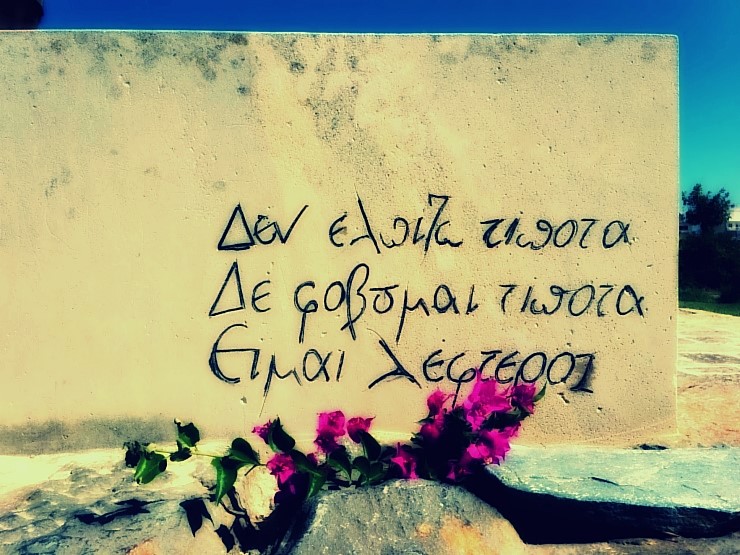 Δεν ελπιζω τιποτα
Δε φοβȣμαι τιποτα
Ειμαι λεφτεροσ